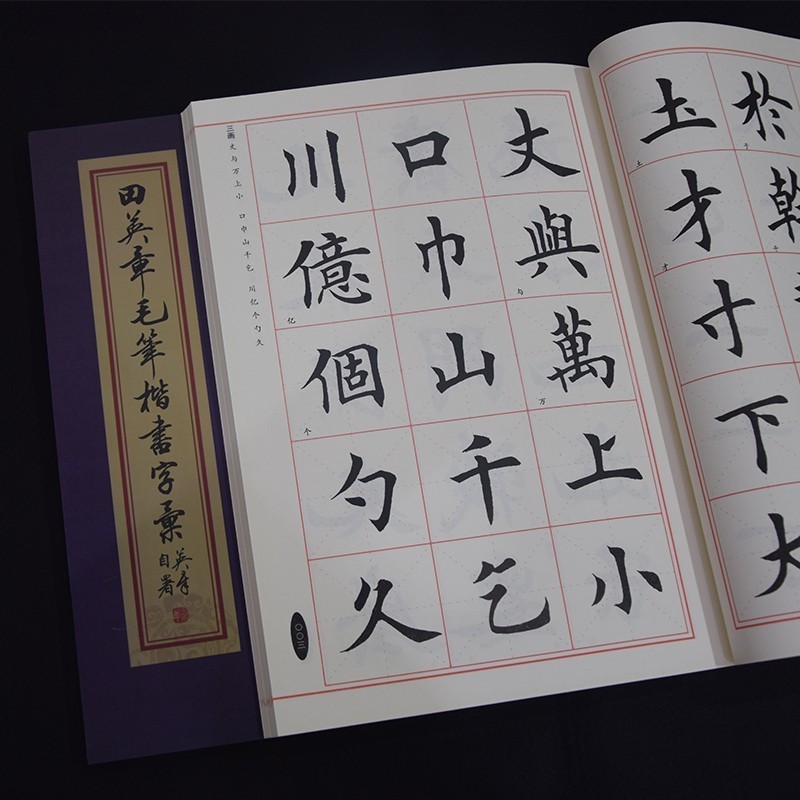 田英章毛筆楷書字彙
英章
自署
三画 丈与万上小 口巾山千乞 川亿个勺久
丈與萬上小
与
万
口巾山千乞
川億個勺久
亿
个
〇〇三
於乾
于
干
土才寸下
土
才